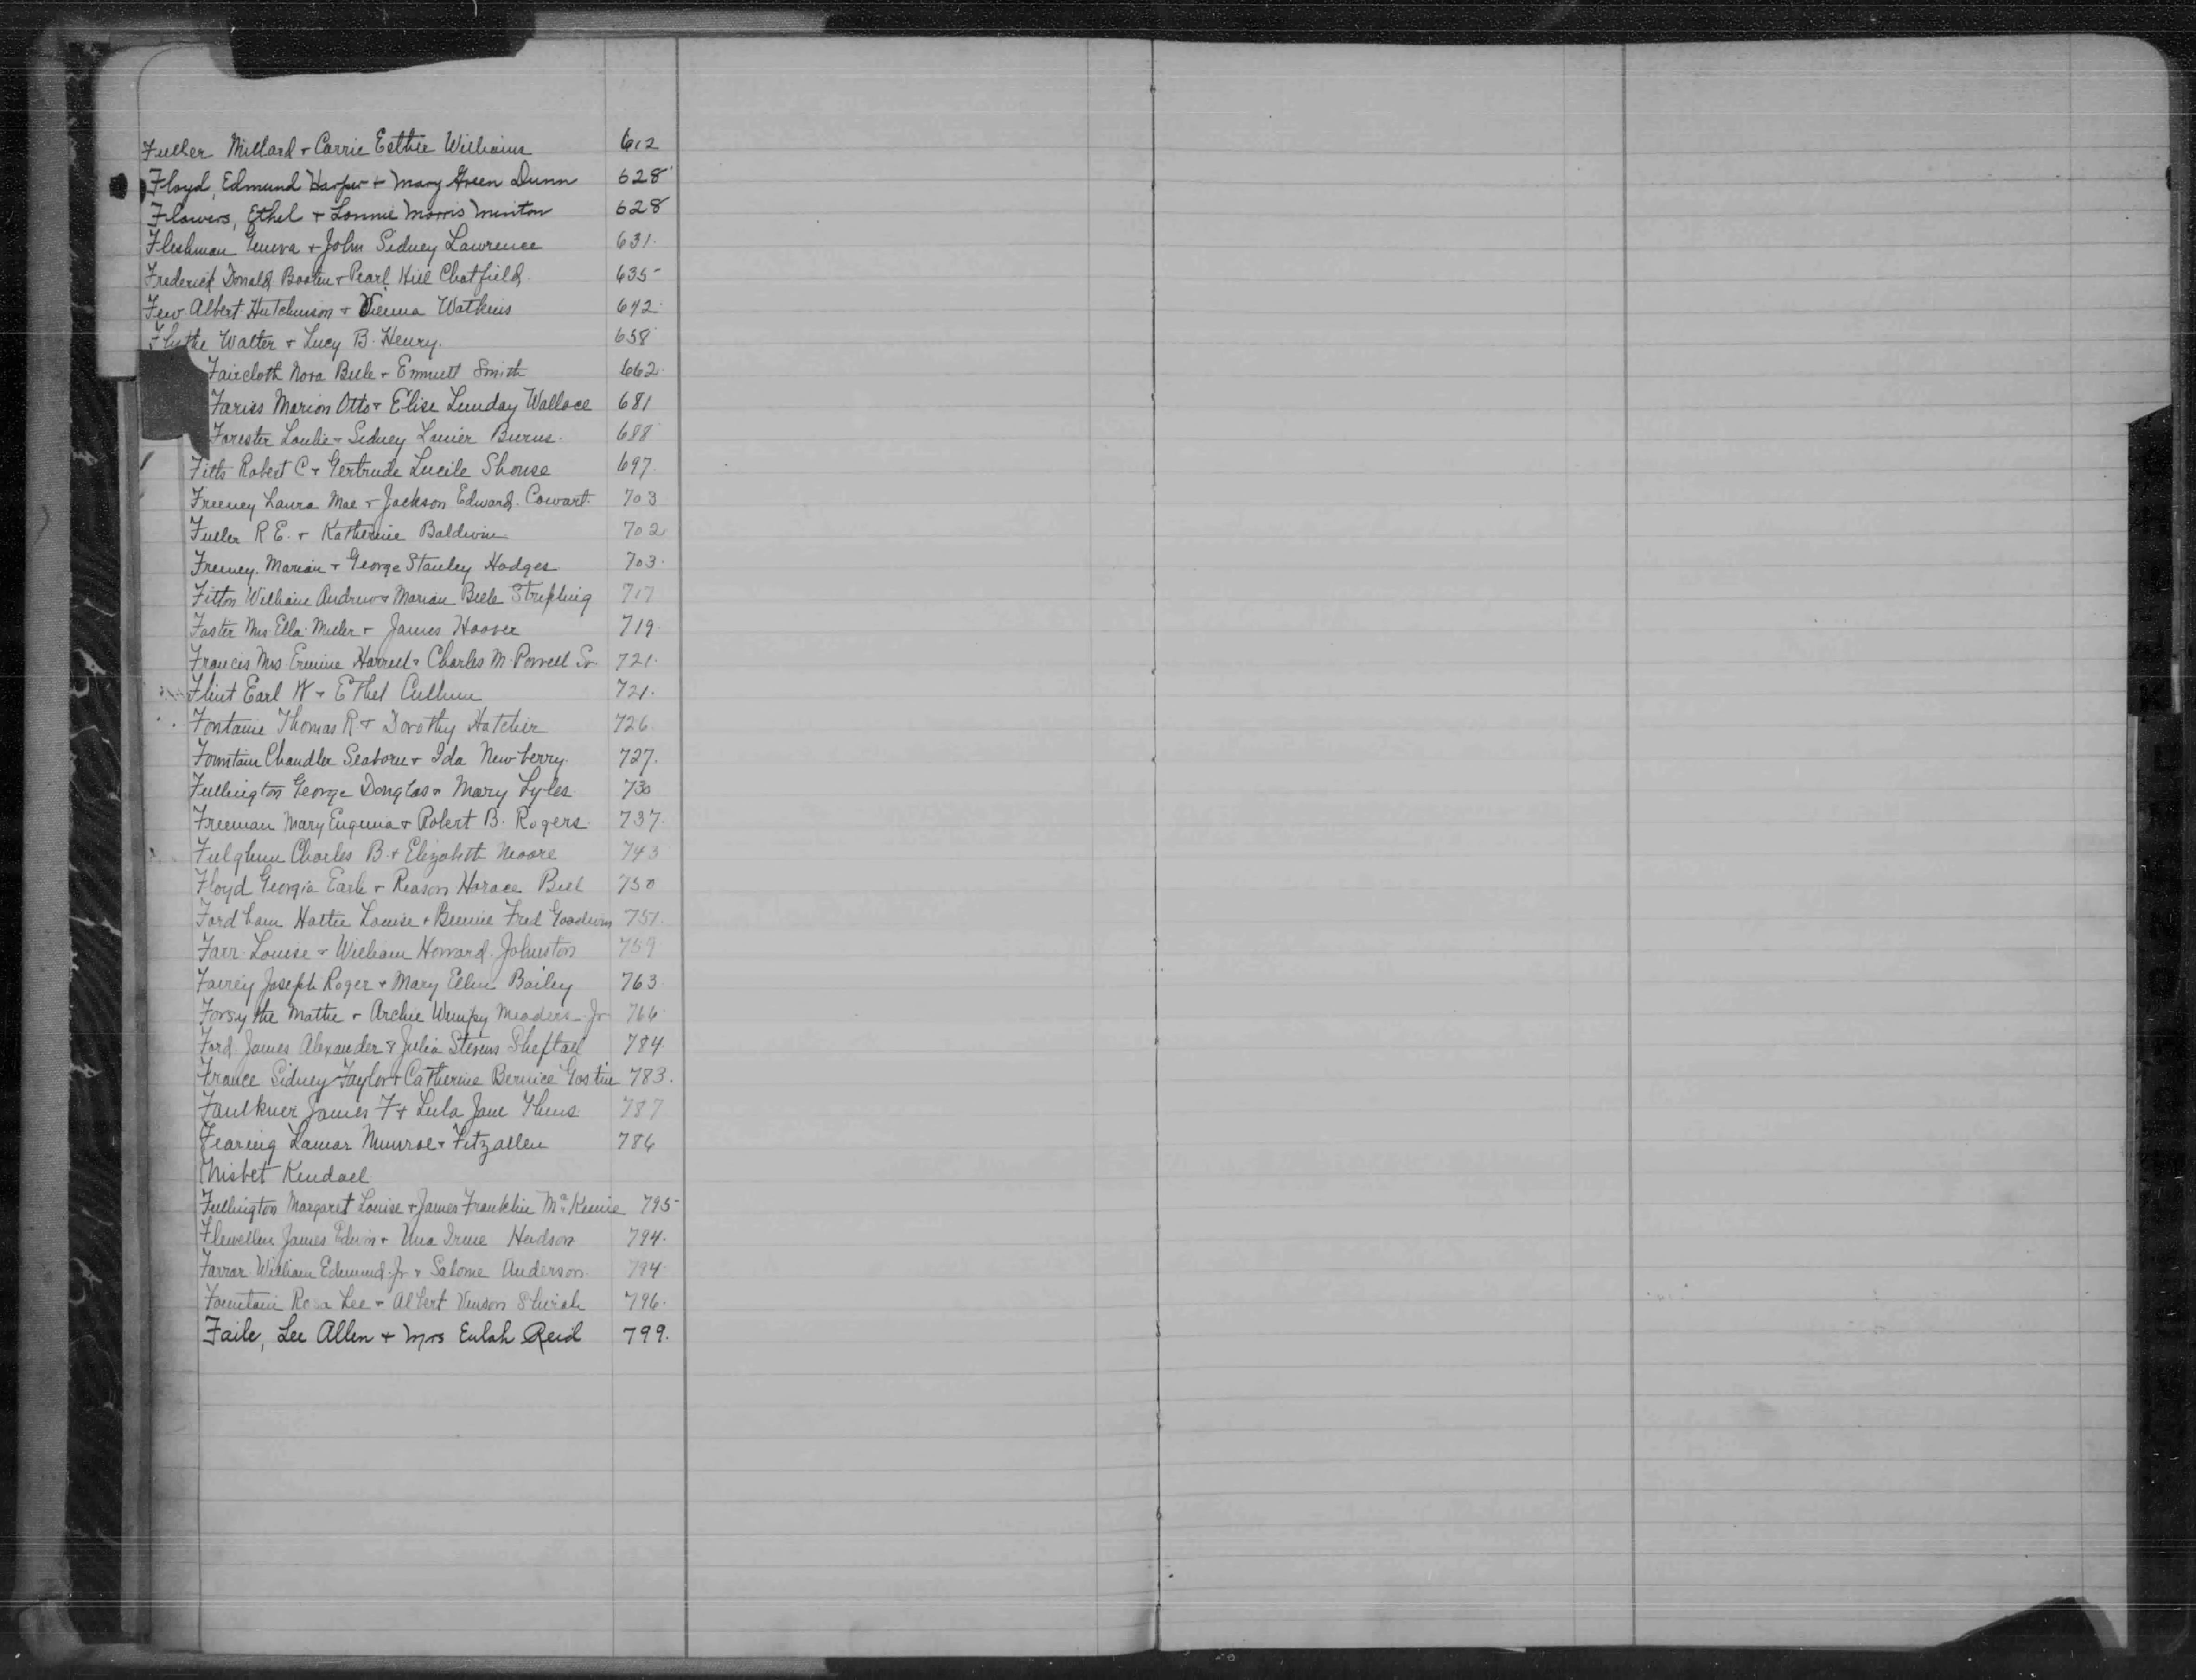 Fuller Millard + Carrie Esther Williams 612
Floyd, Edmund Harper + Mary Green Dunn 628
Flowers, Ethel + Lonnie Morris Minton 628
Fleshman Geneva + John Sidney Lawrence 631.
Frederick Donald Booten + Pearl Hill Chatfield 635
Few Albert Hutchinson + Vienna Watkins 642
Walter + Lucy B. Henry. 658
Faircloth Nora Belle + Emmett Smith 662
Fariss Marion Otto + Elise Lunday Wallace 681
Forester Loulie + Sidney Lanier Burns. 688
Fitts Robert C + Gertrude Lucile Shouse 697
Freeney Laura Mae + Jackson Edward Cowart. 703
Fuller R E. + Katherine Baldwin 702
Freeney. Marian + George Stanley Hodges 703.
Fitton William Andrew + Marian Belle Stripling 717
Foster Mrs Ella Miller + James Hoover 719
Francis Mrs. Ermine Harrell + Charles M. Powell Sr. 721.
Flint Earl W + Ethel Cullum 721.
Fontaine Thomas R + Dorothy Hatcher 726
Fountain Chandler Seaborn + Ida Newberry. 727.
Fullington George Douglas + Mary Lyles 730
Freeman Mary Eugenia + Robert B. Rogers. 737.
Fulghum Charles B. + Elizabeth Moore 743
Floyd Georgia Earle + Reason Horace Bell 750
Fordham Hattie Louise + Bennie Fred Goodwin 751.
Farr. Louise + William Howard. Johnston 759
Fairey Joseph Roger + Mary Ellen Bailey 763
Forsythe Mattie + Archie Wimpy Meaders Jr 766
Ford James Alexander & Julia Stevens Sheftall 784
France Sidney Taylor + Catherine Bernice Gostin 783.
Faulkner James F + Lula Jane 787
Fearing Lamar Munroe + Fitzallen 786
Nisbet Kendall
Fullington Margaret Louise + James Franklin 795
Flewellen James Edwin + Una Irene Hudson 794.
Farrar William Edmund Jr + Salome Anderson. 794
Fountain Rosa Lee + Albert Vinson 796.
Faile, Lee Allen + Mrs Eulah Reid 799.